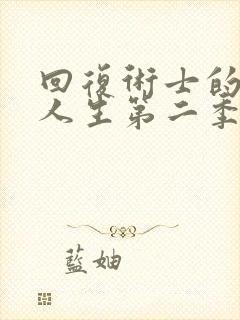 回復術士的
人生第二季
藍妯